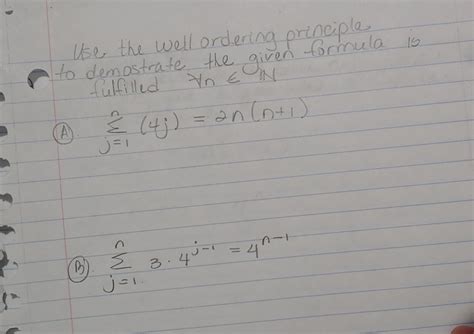 Use the well ordering principle
to demostrate the given formula is
fulfilled ∀n ∈ ℕ
(A) $\sum_{j=1}^{n} (4j) = 2n(n+1)$
(B) $\sum_{j=1}^{n} 3 \cdot 4^{j-1} = 4^{n-1}$